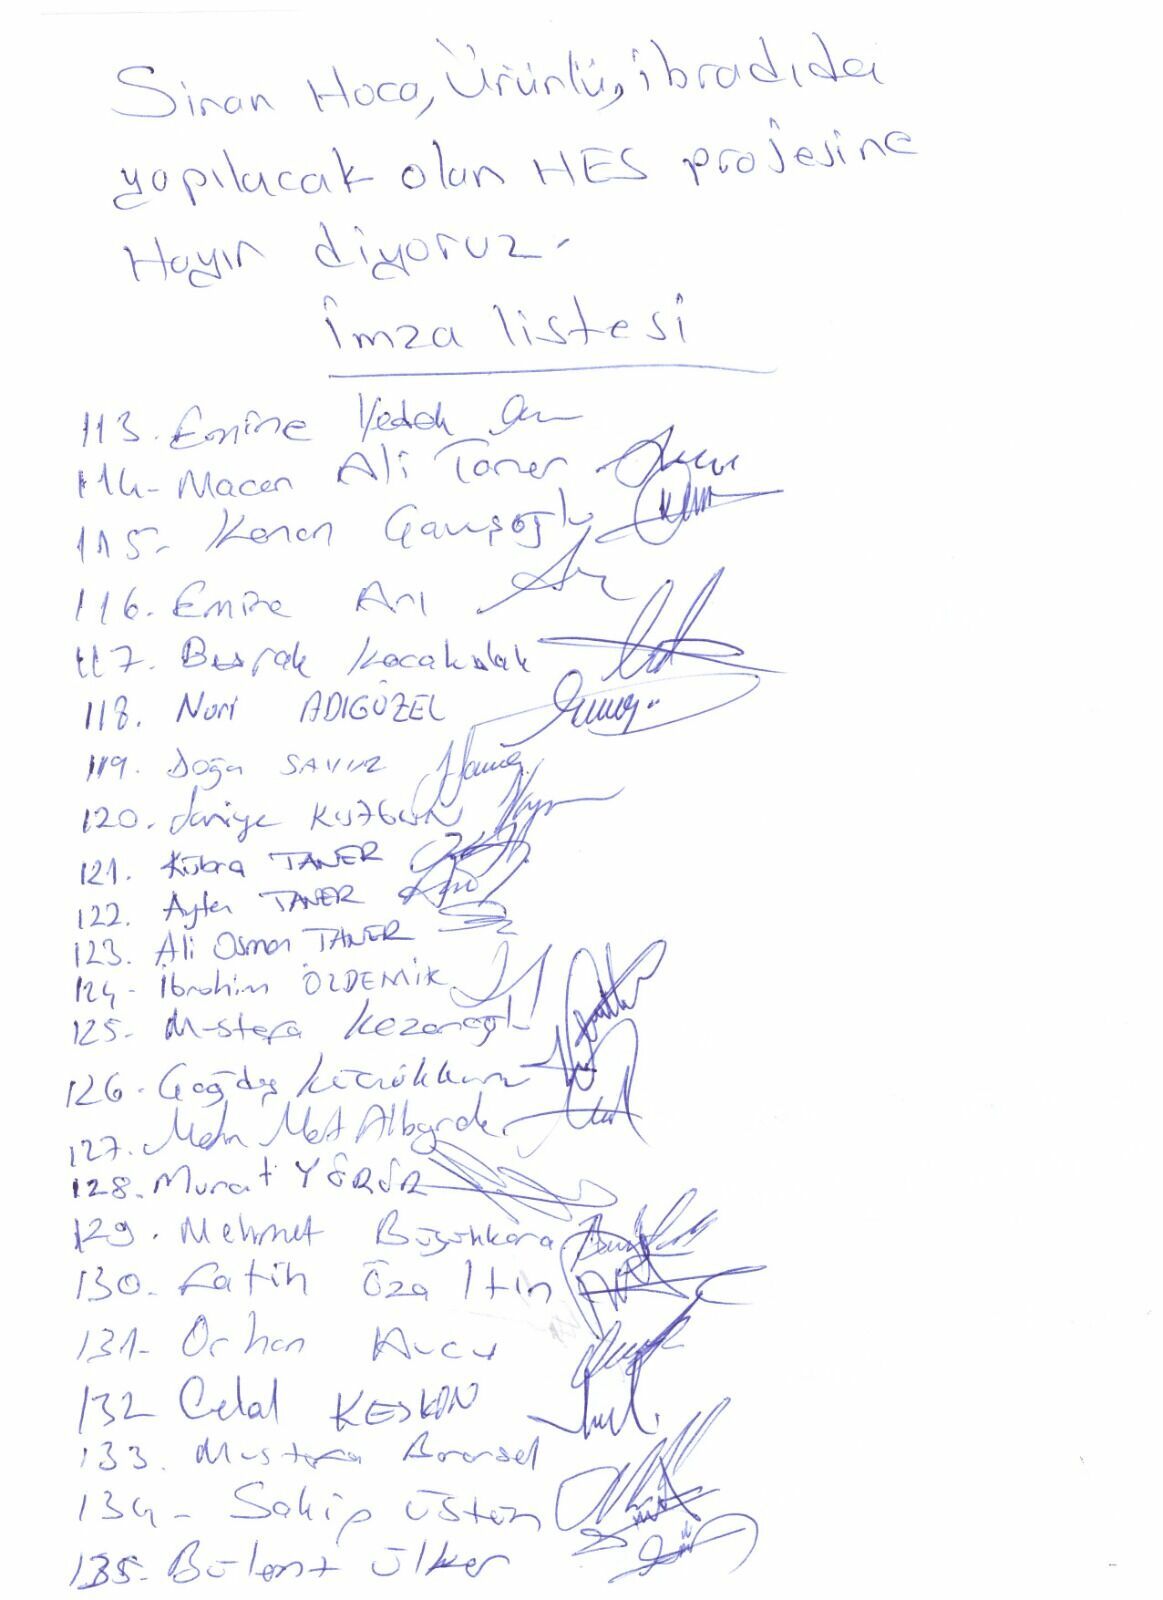 Sinan Hoca, Ürünlü, ibradıda
yapılacak olan HES projesine
Hayır diyoruz.
İmza listesi
113. Emine Yedek
114- Macen Ali Taner
115- Kenan Gavuşoğlu
116. Emine Arı
117. Burak Kocakulak
118. Nuri ADIGÜZEL
119. Doğa SAVUZ
120. KUZGUN
121. Kübra TANER
122. Ayten TANER
123. Ali Osman TANER
124- İbrahim ÖZDEMİR
125- Mustafa Kezanoğlu
126- Çağdaş
127. Albayrak
128. Murat YÜRÜR
129. Mehmet Büyükkara
130. Fatih Özaltın
131- Orhan Avcu
132 Celal KESKİN
133. Mustafa
134- Sakip Üstün
135- Bülent Ülker